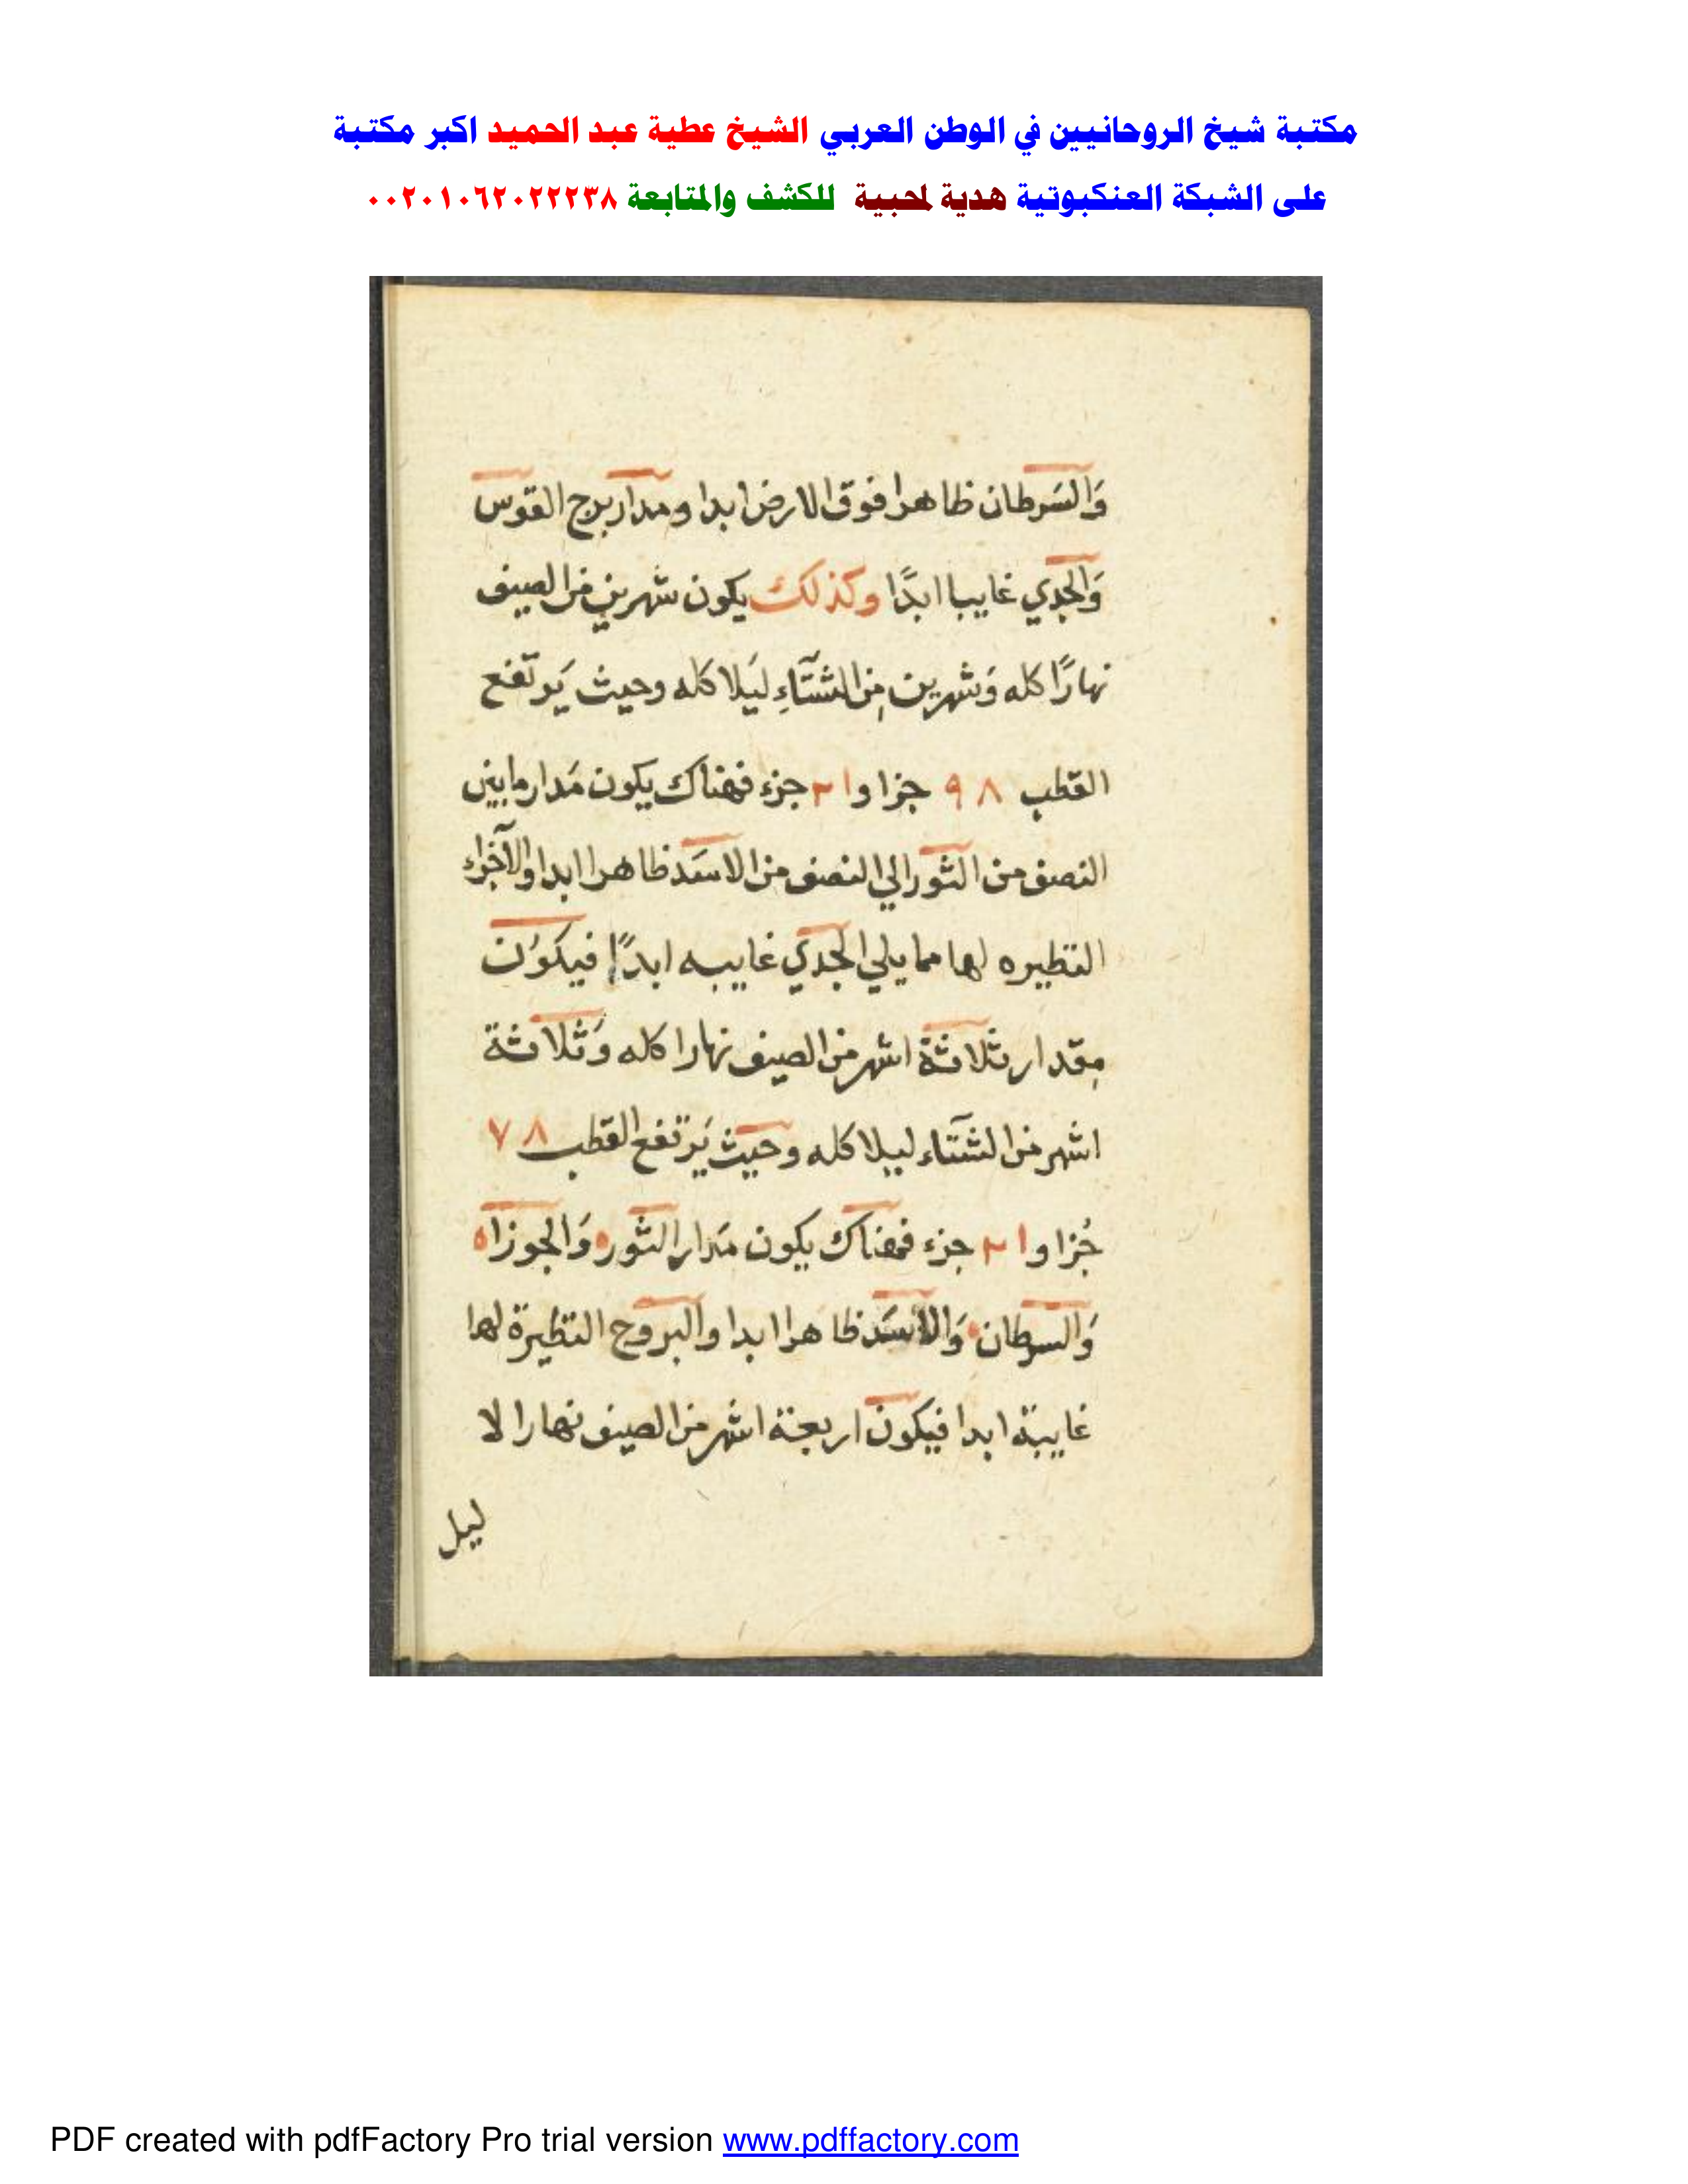 مكتبة شيخ الروحانيين في الوطن العربي الشيخ عطية عبد الحميد اكبر مكتبة
على الشبكة العنكبوتية هدية لمحبية للكشف والمتابعة ٠٠٢٠١٠٦٢٠٢٢٢٣٨
وَالسَرطان ظاهرا فوق الارض ابدا ومدار برج القوس
وَالجدي غايبا ابدًا وكذلك يكون شهرين من الصيف
نهارًا كله وَشهرين مِن الشتَآءِ ليَلا كله وحيث يَرتفع
القطب ٩٨ جزا وا٢ جزء فهناك يكون مَدار مابين
النصف من الثور الي النصف من الاسَد ظاهرا ابدا والآجزاء
النظيره لها مما يلي الجدي غايبه ابدًا فيكوُن
مِقدار ثلاثة اشهر من الصيف نهارا كله وَثلاثة
اشهر من الشتَآء ليلا كله وحيث يَرتفع القطب ٧٨
جُزا وا٢ جزء فهناك يكون مَدار الثوره وَالجوزاه
وَالسرطان وَالاسَد ظاهرا ابدا والبروج النظيرة لها
غايبة ابدا فيكون اربعة اشهر من الصيف نهارا لا
ليل
PDF created with pdfFactory Pro trial version www.pdffactory.com